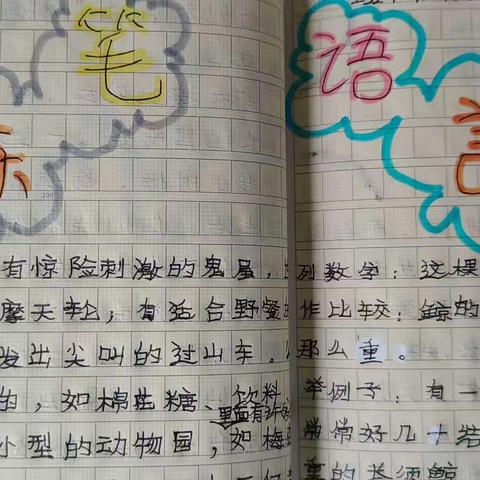 笔
示
有惊险刺激的鬼屋,
摩天轮;有适合野餐
发出尖叫的过山车。
的,如棉花糖、饮料
里面有
小型的动物园,如梅
语
言
列数字:这棵
作比较:鲸的
那么重。
举例子:有一
常常好几十
重的 须鲸